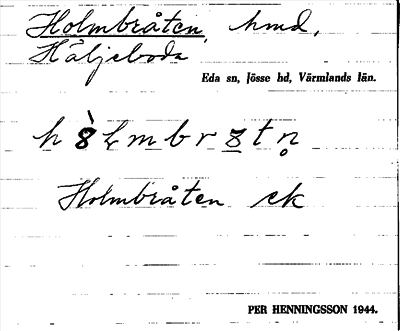 Holmbråten, hmd,
Häljeboda
Eda sn, Jösse hd, Värmlands län.
Holmbråten ek
PER HENNINGSSON 1944.